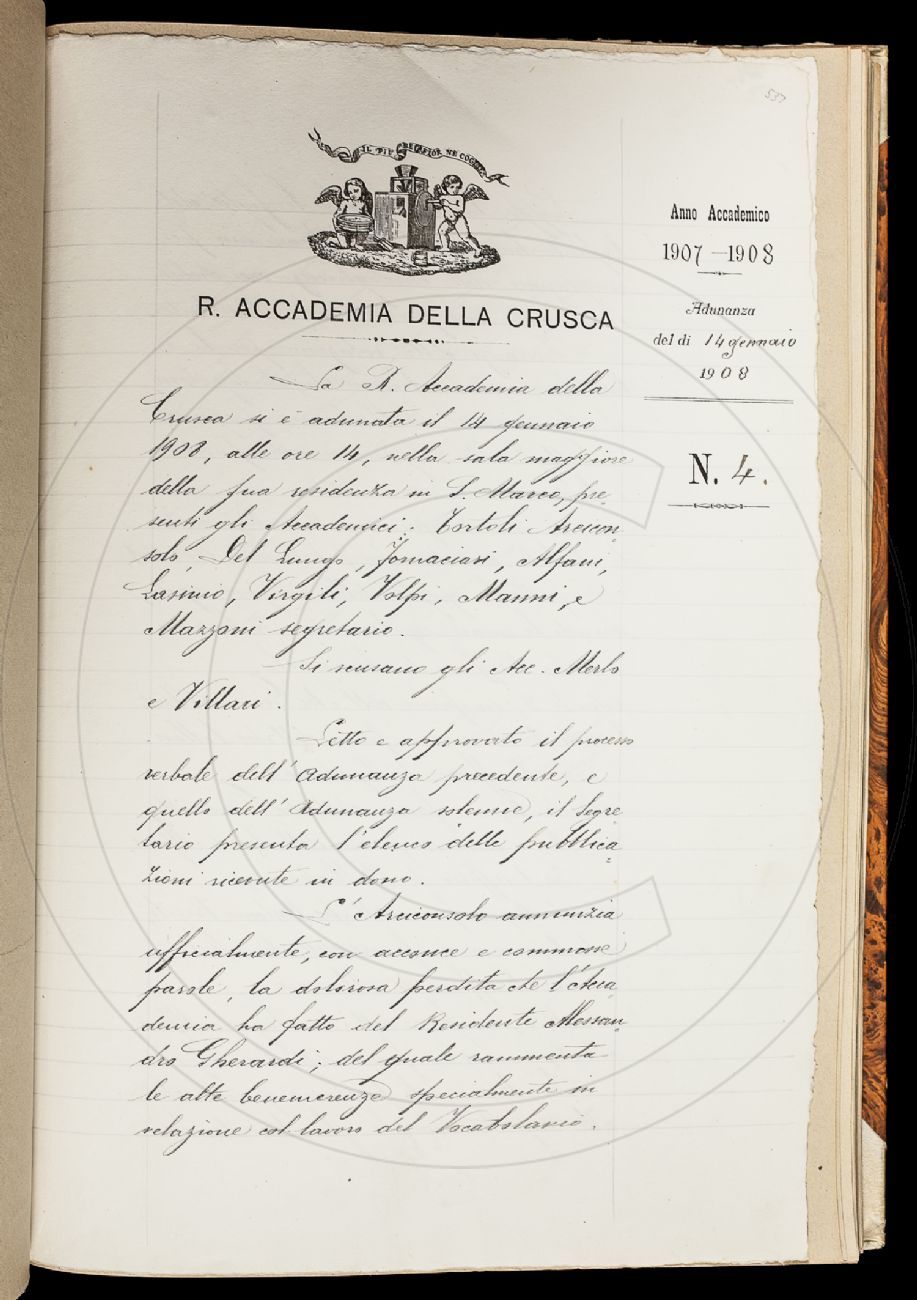 537
IL PIÙ BEL FIOR NE COGLIE
Anno Accademico
1907-1908
Adunanza
del dì 14 gennaio
1908
N. 4.
R. ACCADEMIA DELLA CRUSCA
La R. Accademia della
Crusca si è adunata il 14 gennaio
1908, alle ore 14, nella sala maggiore
della sua residenza in S. Marco, pre-
senti gli Accademici: Tortoli Arcicon-
solo, Del Lungo, Tomaciari, Alfani,
Lasinio, Virgili, Volpi, Manni, e
Mazzoni segretario.
Si scusano gli Acc. Merlo
e Villari.
Letto e approvato il processo
verbale dell'Adunanza precedente, e
quello dell'Adunanza solenne, il Segre-
tario presenta l'elenco delle pubblica-
zioni ricevute in dono.
L'Arciconsolo annunzia
ufficialmente, con acconce e commosse
parole, la dolorosa perdita che l'Acca-
demia ha fatto del Residente Alessan-
dro Gherardi; del quale rammenta
le alte benemerenze specialmente in
relazione col lavoro del Vocabolario.